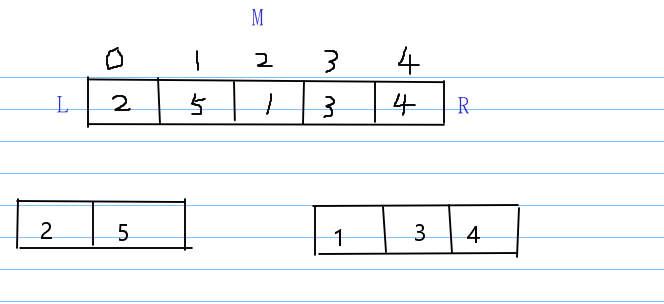 M
0 1 2 3 4
L 2 5 1 3 4 R
2 5 1 3 4